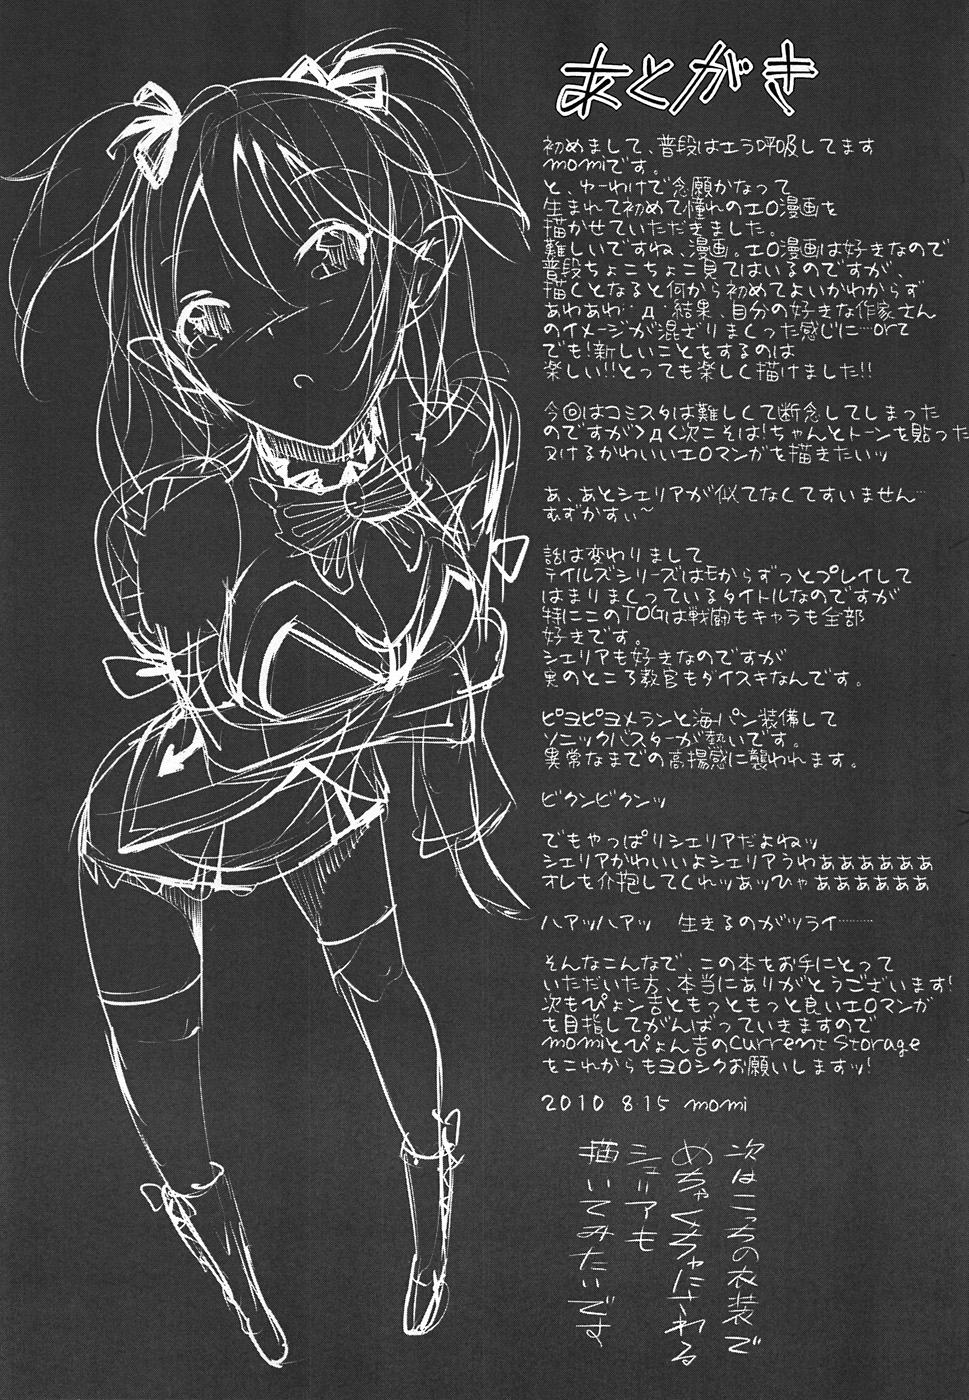 あとがき
初めまして、普段はエラ呼吸してます
momiです。
と、ゆーわけで念願かなって
生まれて初めて憧れのエロ漫画を
描かせていただきました。
難しいですね、漫画。エロ漫画は好きなので
普段ちょこちょこ見てはいるのですが、
描くとなると何から初めてよいかわからず
あわあわ・・д・結果、自分の好きな作家さん
のイメージが混ざりまくった感じに…orz
でも!新しいことをするのは
楽しい!!とっても楽しく描けました!!
今回はコミスタは難しくて断念してしまった
のですが>д<次こそは!ちゃんとトーンを貼った
ヌけるかわいいエロマンガを描きたいッ
あ、あとシェリアが似てなくてすいません…
むずかすぃ~
話は変わりまして
テイルズシリーズはEからずっとプレイして
はまりまくっているタイトルなのですが
特にこのTOGは戦闘もキャラも全部
好きです。
シェリアも好きなのですが
実のところ教官もダイスキなんです。
ピヨピヨメランと海パン装備して
ソニックバスターが熱いです。
異常なまでの高揚感に襲われます。
ビクンビクンッ
でもやっぱりシェリアだよねッ
シェリアかわいいよシェリアうわぁぁぁぁぁぁ
オレを介抱してくれッあッひゃぁぁぁぁぁぁ
ハアッハアッ 生きるのがツライ………
そんなこんなで、この本をお手にとって
いただいた方、本当にありがとうございます!
次もぴょン吉ともっともっと良いエロマンガ
を目指してがんばっていきますので
momiとぴょん吉のCurrent Storage
をこれからもヨロシクお願いしますッ!
2010 8.15 momi
次はこっちの衣装で
めちゃくちゃにされる
シェリアも
描いてみたいです